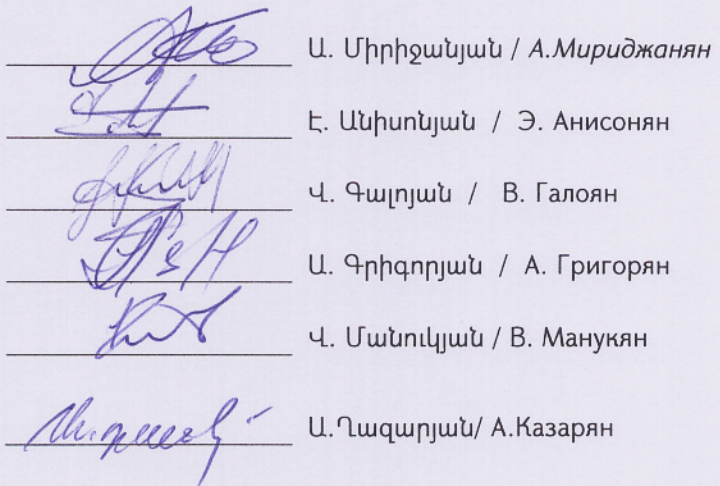 Ա. Միրիջանյան / А.Мириджанян
Է. Անիսոնյան / Э. Анисонян
Վ. Գալոյան / В. Галоян
Ա. Գրիգորյան / А. Григорян
Վ. Մանուկյան / В. Манукян
Ա.Ղազարյան/ А.Казарян